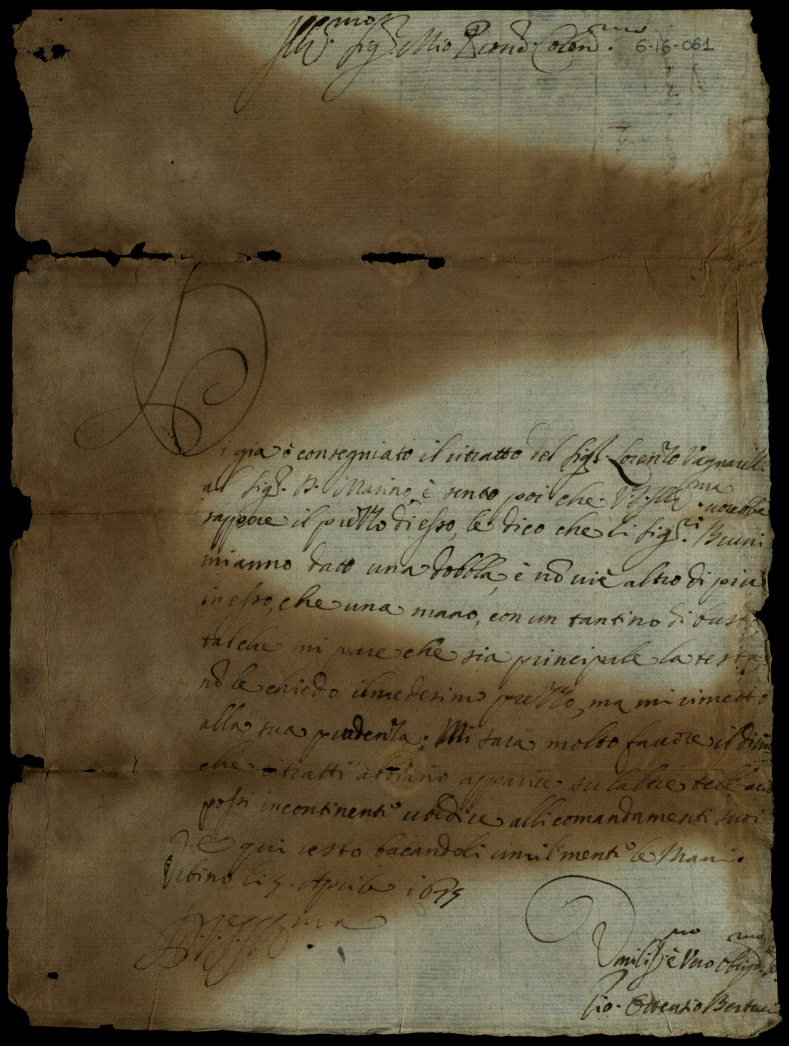 Ill.mo Sig.r Mio P.ron Colen.mo 6-16-061
Di gia ò consegniato il ritratto del Sig.r Lorenzo Vagnarell
al Sig.r B. Marino, è sento poi che V.S. Ill.ma uorebbe
sappore il prezzo di esso, le dico che li Sig.ri Bruni
mi anno dato una dobbla, è nõ uiè altro di piu
in esso, che una mano, con un tantino di bust
talche mi pare che sia principale la testa,
nõ le chiedo il medesimo prezzo, ma mi rimetto
alla sua prudenza; Mi sarà molto fauore il
che ritratti abbiano apparire su laltre tele acio
possi incontinenti ubedire alli comandamenti suoi
E qui resto baciandoli umilmente le Mani.
Vrbino li 5 Aprile 1675
D.V.S. Ill.ma
Vmiliss.mo è Vero Oblig.mo
Gio. Ortensio Bertuci